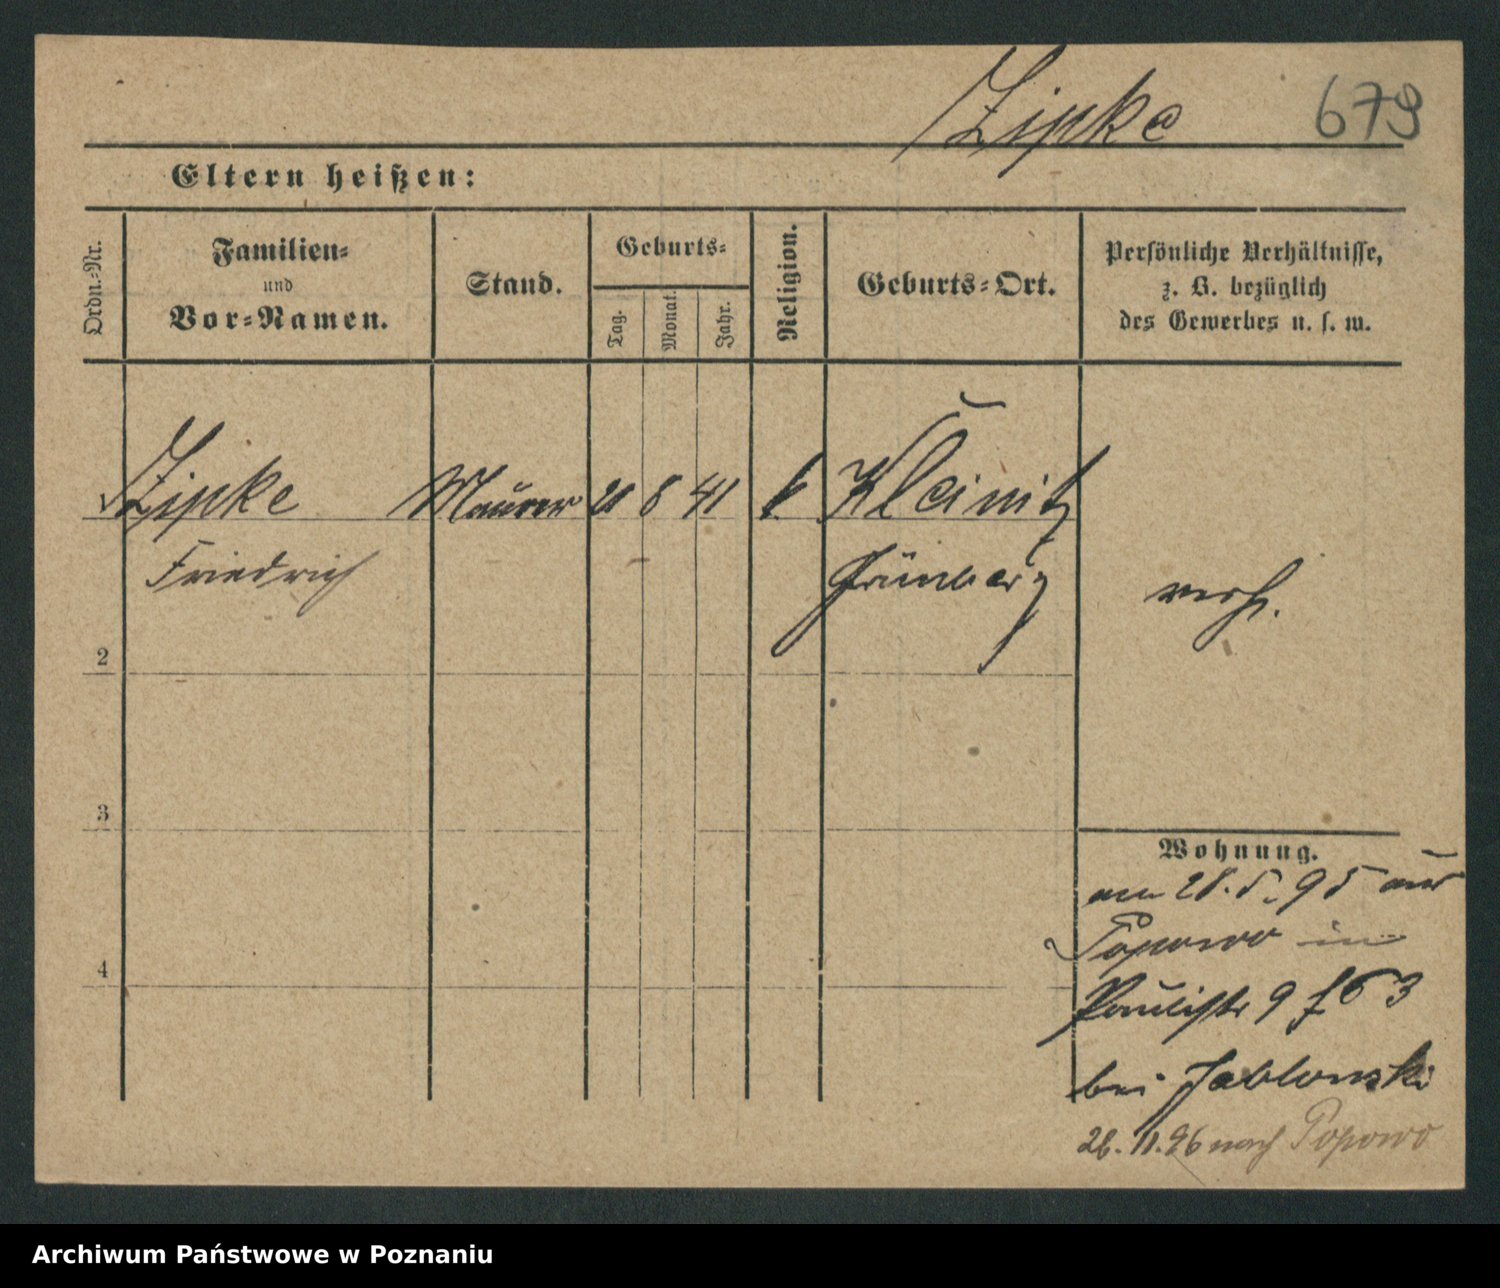 Zipke 679
Eltern heißen:
Ordn.-Nr.
Familien-
und
Vor-Namen.
Stand.
Geburts-
Tag.
Monat.
Jahr.
Religion.
Geburts-Ort.
Persönliche Verhältnisse,
z. B. bezüglich
des Gewerbes u. s. w.
Zipke Maurer 8 41 k Kleinitz
Friedrich Grünberg
verh.
2
3
4
Wohnung.
am 28. 5. 95 aus
Popowo in
Paulistr 9 63
bei Jablonski
26. 11. 96 nach Popowo
Archiwum Państwowe w Poznaniu